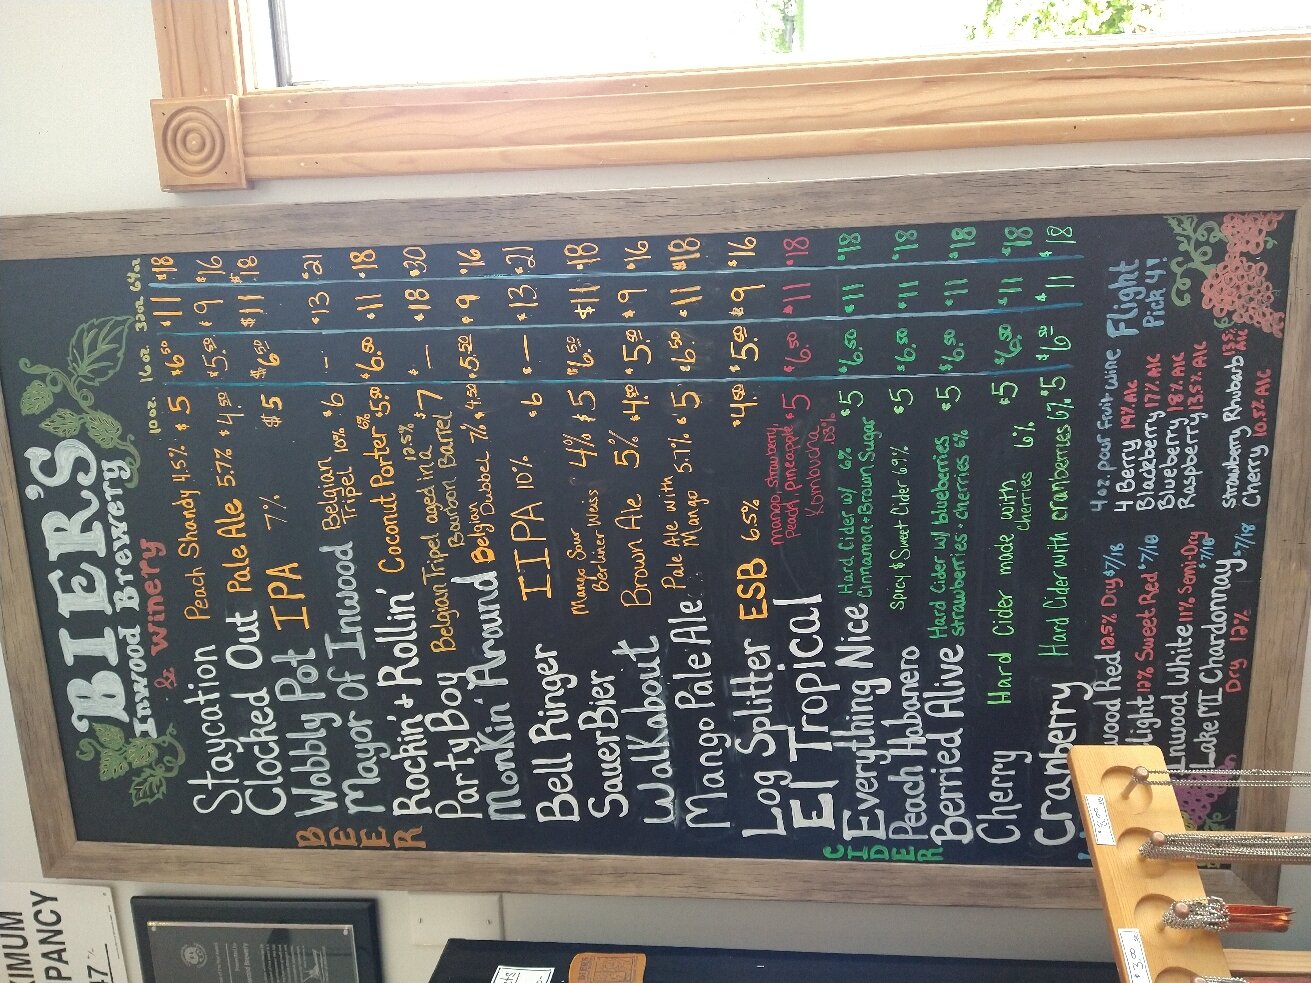 BIER'S
Inwood Brewery
& Winery
10oz. 16oz. 32oz 64oz
Staycation Peach Shandy 4.5% $5 $6.50 $11 $18
Clocked Out Pale Ale 5.7% $4.50 $5.50 $9 $16
Wobbly Pot IPA 7% $5 $6.50 $11 $18
Mayor Of Inwood Belgian Tripel 10% $6 - $13 $21
Rockin' + Rollin' Coconut Porter 6% 5.50 $6.50 $11 $18
Party Boy Belgian Tripel aged in a Bourbon Barrel 12.5% $7 $— $18 $30
Monkin' Around Belgian Dubbel 7% $4.50 $5.50 $9 $16
Bell Ringer IIPA 10% $6 $— $13 $21
SauerBier Mango Sour Berliner Weiss 4% $5 $6.50 $11 $18
Walkabout Brown Ale 5% $4.50 $5.50 $9 $16
Mango Pale Ale Pale Ale with Mango 5.7% $5 $6.50 $11 $18
Log Splitter ESB 6.5% $4.50 $5.50 $9 $16
El Tropical Mango, strawberry, Peach, Pineapple Kombucha $5 $6.50 $11 $18
BEER
CIDER
Everything Nice Hard Cider w/ Cinnamon + Brown Sugar 6% $5 $6.50 $11 $18
Peach Habanero Spicy & Sweet Cider 6.9% $5 $6.50 $11 $18
Berried Alive Hard Cider w/ blueberries strawberries + cherries 6% $5 $6.50 $11 $18
Cherry Hard Cider made with cherries 6% $5 $6.50 $11 $18
Cranberry Hard Cider with cranberries 6% $5 $6.50 $11 $18
wood Red 12.5% Dry $7/18
light 12% Sweet Red $7/18
Inwood White 11% Semi-Dry $7/18
Lake MI Chardonnay $7/18
Dry 12%
4oz. pour fruit wine Flight
4 Berry 19% Alc Pick 4!
Blackberry 17% Alc
Blueberry 18% Alc
Raspberry 13.5% Alc
Strawberry Rhubarb 13.5% Alc
Cherry 10.5% Alc
XIMUM
PANCY
47
$3.00